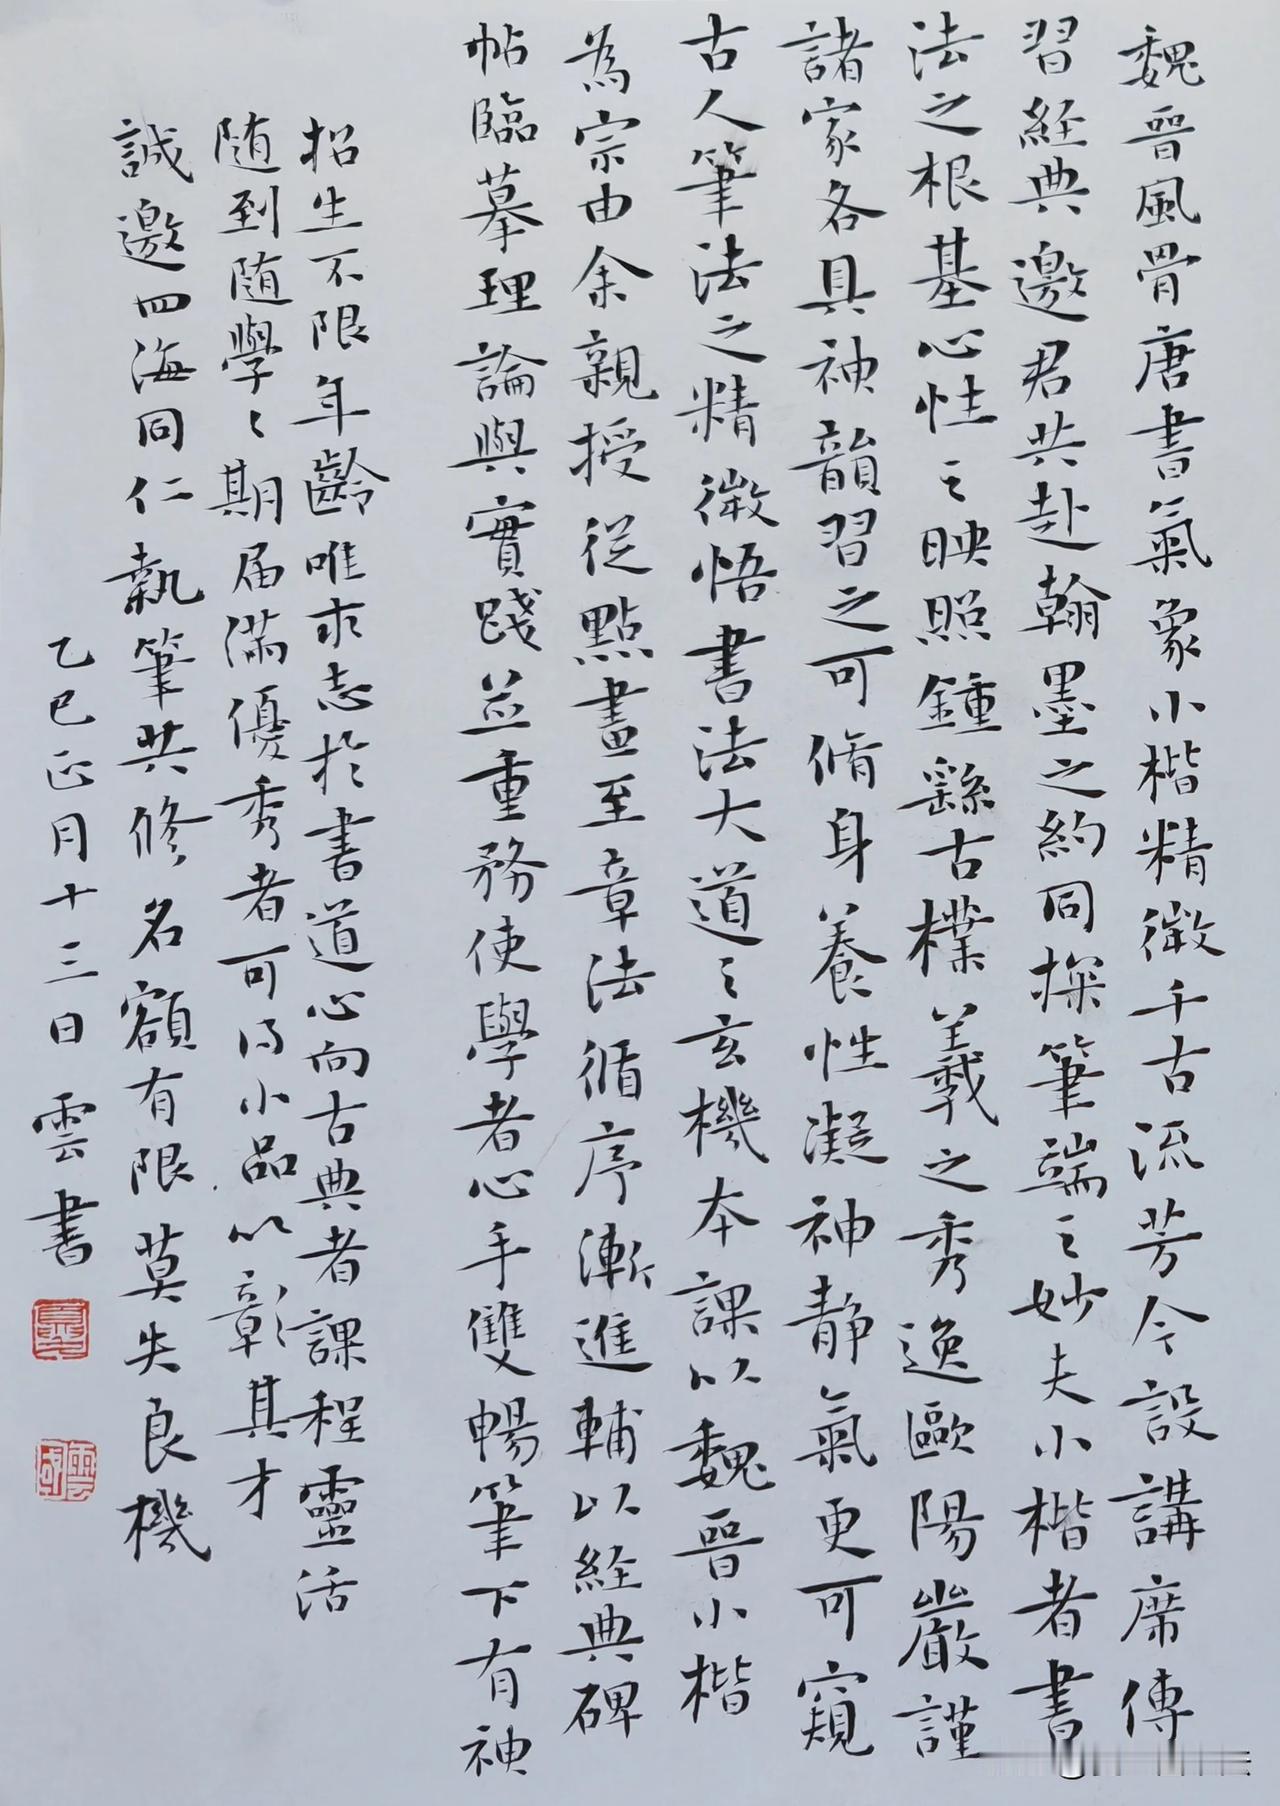 魏晉風骨唐書氣象小楷精微千古流芳今設講席傳
習經典邀君共赴翰墨之約同探筆端之妙夫小楷者書
法之根基心性之映照鍾繇古樸羲之秀逸歐陽嚴謹
諸家各具神韻習之可脩身養性凝神靜氣更可窺
古人筆法之精微悟書法大道之玄機本課以魏晉小楷
為宗由余親授從點畫至章法循序漸進輔以經典碑
帖臨摹理論與實踐並重務使學者心手雙暢筆下有神
招生不限年齡唯求志於書道心向古典者課程靈活
随到随學々期届滿優秀者可得小品以彰其才
誠邀四海同仁執筆共修名額有限莫失良機
乙巳正月十三日雲書